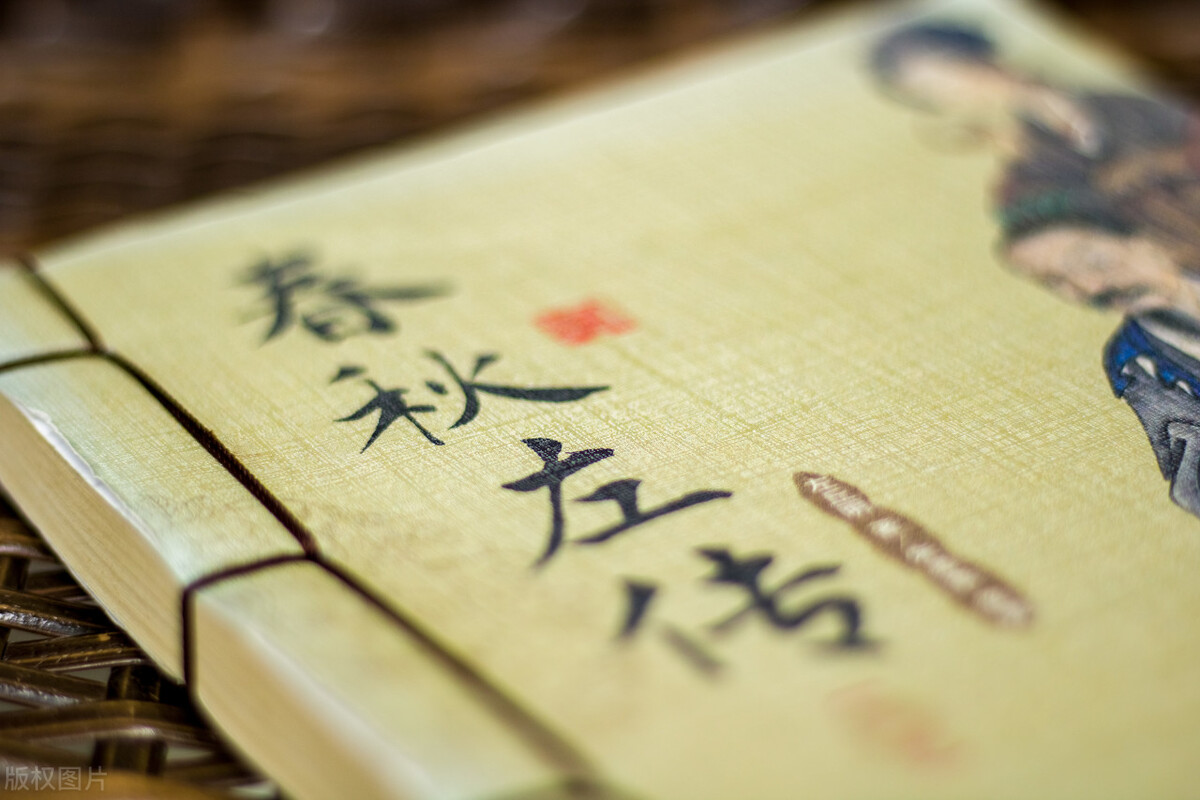 春秋左传
版权图片